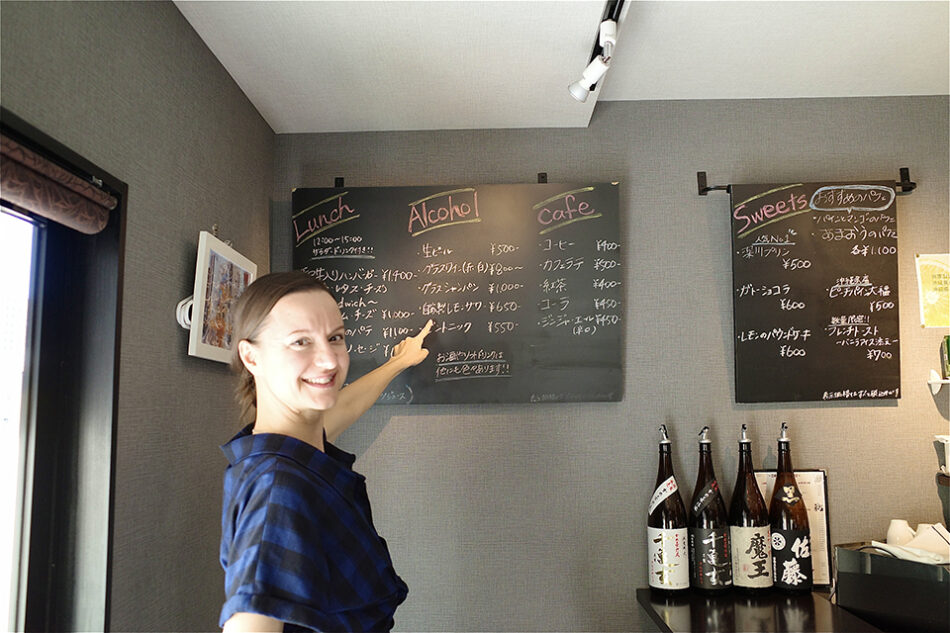 Lunch
12:00~15:00
サラダ・ドリンク付き!!
入りハンバーガー ¥1400
レタス・チーズ)
dwich~
ム・チーズ ¥1,000
のパテ ¥1,100
ソーセージ
Alcohol
・生ビール ¥500-
・グラスワイン(赤・白) ¥800~
・グラスシャンパン ¥1,000-
自家製レモンサワー ¥650-
ントニック ¥550-
お酒やソフトドリンクは
他にも色々あります!!
cafe
・コーヒー ¥400-
・カフェラテ ¥500-
・紅茶 ¥400-
・コーラ ¥450-
・ジンジャーエール ¥450-
Sweets
人気No.1
・深川プリン
¥500
・ガトーショコラ
¥600
・レモンのパウンドケーキ
¥600
おすすめのパフェ
・パインとマンゴのパフェ
・あまおうのパフェ
各¥1,100
沖縄県産
・ピーチパイン大福
¥500
数量限定!!
・フレンチトースト
~バニラアイス添え~
¥700
千亀女
千亀女
魔王
佐藤